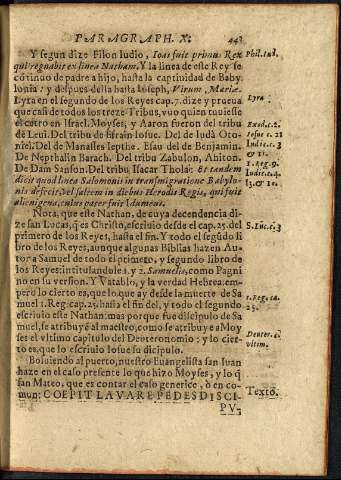 PARAGRAPH. X. 443
Y segun dize Filon Iudio, Ioas fuit primus Rex
qui regnabit ex linea Nathan. Y la linea de este Rey se
cótinuo de padre a hijo, hasta la captiuidad de Baby
lonia: y despues della hasta Ioseph, Virum, Mariæ.
Lyra en el segundo de los Reyes cap. 7. dize y prueua
que casi de todos los treze Tribus, vuo quien tuuiesse
el cetro en Israel. Moyses, y Aaron fueron del tribu
de Leui. Del tribu de Efrain Iosue. Del de Iudà Oto-
niel. Del de Manasses Iepthe. Esau del de Benjamin.
De Nepthalin Barach. Del tribu Zabulon, Ahiton.
De Dam Sanson. Del tribu Isacar Thola: Et tandem
dicit quod linea Salomonis in transmigratione Babylo-
nis defecit. Vel saltem in diebus Herodis Regis, qui fuit
alienigena, cuius pater fuit Idumeus.
Nota, que este Nathan, de cuya decendencia di-
ze san Lucas, q̃ es Christo, escriuio desde el cap. 25. del
primero de los Reyes, hasta el fin. Y todo el segũdo li
bro de los Reyes, aunque algunas Biblias hazen Au-
tor a Samuel de todo el primero, y segundo libro de
los Reyes: intitulandole 1. y 2. Samuelis, como Pagni
no en su version. Y Vatablo, y la verdad Hebrea: em-
pero lo cierto es, que lo que ay desde la muerte de Sa
muel 1. Reg. cap. 25. hasta el fin del, y todo el segundo
escriuio este Nathan: mas porque fue dicipulo de Sa
muel, se atribuye al maestro, como se atribuye a Moy
ses el vltimo capitulo del Deuteronomio: y lo cier-
to es, que lo escriuio Iosue su dicipulo.
Boluiendo al puerto, nuestro Euangelista san Iuan
haze en el caso presente lo que hizo Moyses, y lo q̃
san Mateo, que es contar el caso generice, ò en co-
mun: COEPIT LAVARE PEDES DISCI-
PV-
Phil. Iud.
Lyra
Exod. c. 2.
Iosue c. 21
Iudic. c. 3
& 11.
1. Reg. 9.
Iudic. c. 4.
13. & 10.
S. Luc. c. 3
1. Reg. ca.
25.
Deuter. c.
vltim.
Texto.